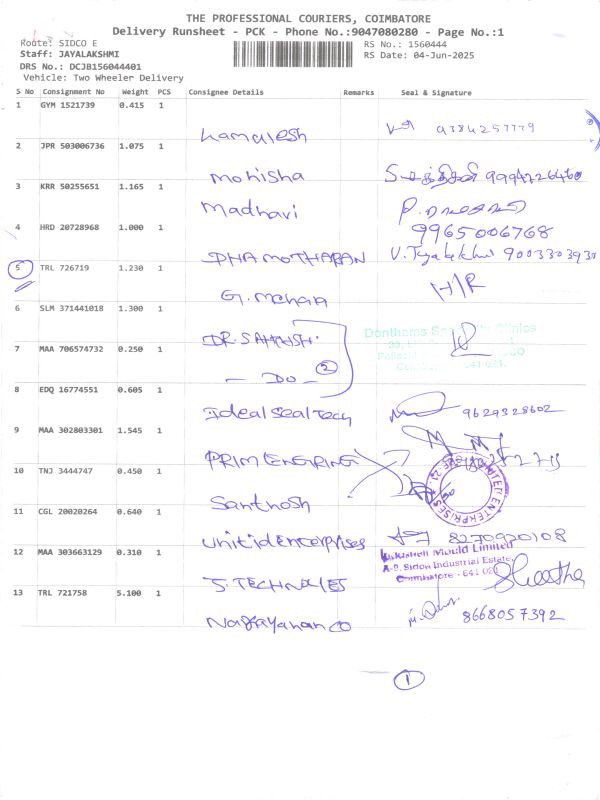 THE PROFESSIONAL COURIERS, COIMBATORE
Delivery Runsheet - PCK - Phone No.:9047080280 - Page No.:1
Route: SIDCO E
RS No.: 1560444
Staff: JAYALAKSHMI
RS Date: 04-Jun-2025
DRS No.: DCJB156044401
Vehicle: Two Wheeler Delivery
S No Consignment No Weight PCS Consignee Details Remarks Seal & Signature
1 GYM 1521739 0.415 1
Kamalesh 9384257779
2 JPR 503006736 1.075 1
Mohisha
3 KRR 50255651 1.165 1
Madhavi
4 HRD 20728968 1.000 1
9965006768
DHAMOTHARAN
5 TRL 726719 1.230 1
G. Mohan H/R
6 SLM 371441018 1.300 1
DR. SAHNISH.
7 MAA 706574732 0.250 1
- DO - 2
8 EDQ 16774551 0.605 1
Ideal Seal Tech 9629328602
9 MAA 302803301 1.545 1
PRIM ENGRING
10 TNJ 3444747 0.450 1
Santhosh
11 CGL 20020264 0.640 1
Unitid Enterprises 8270920108
12 MAA 303663129 0.310 1
Mould Limited
A-9, Sidco Industrial Estate,
Coimbatore - 641 021
13 TRL 721758 5.100 1
8668057392
1